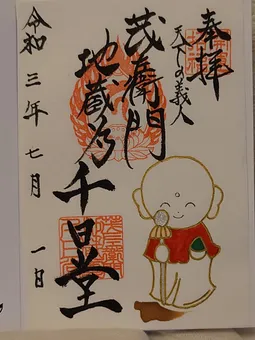 奉拝
天下の義人
茂衛門
地蔵尊
千日堂
令和三年七月一日